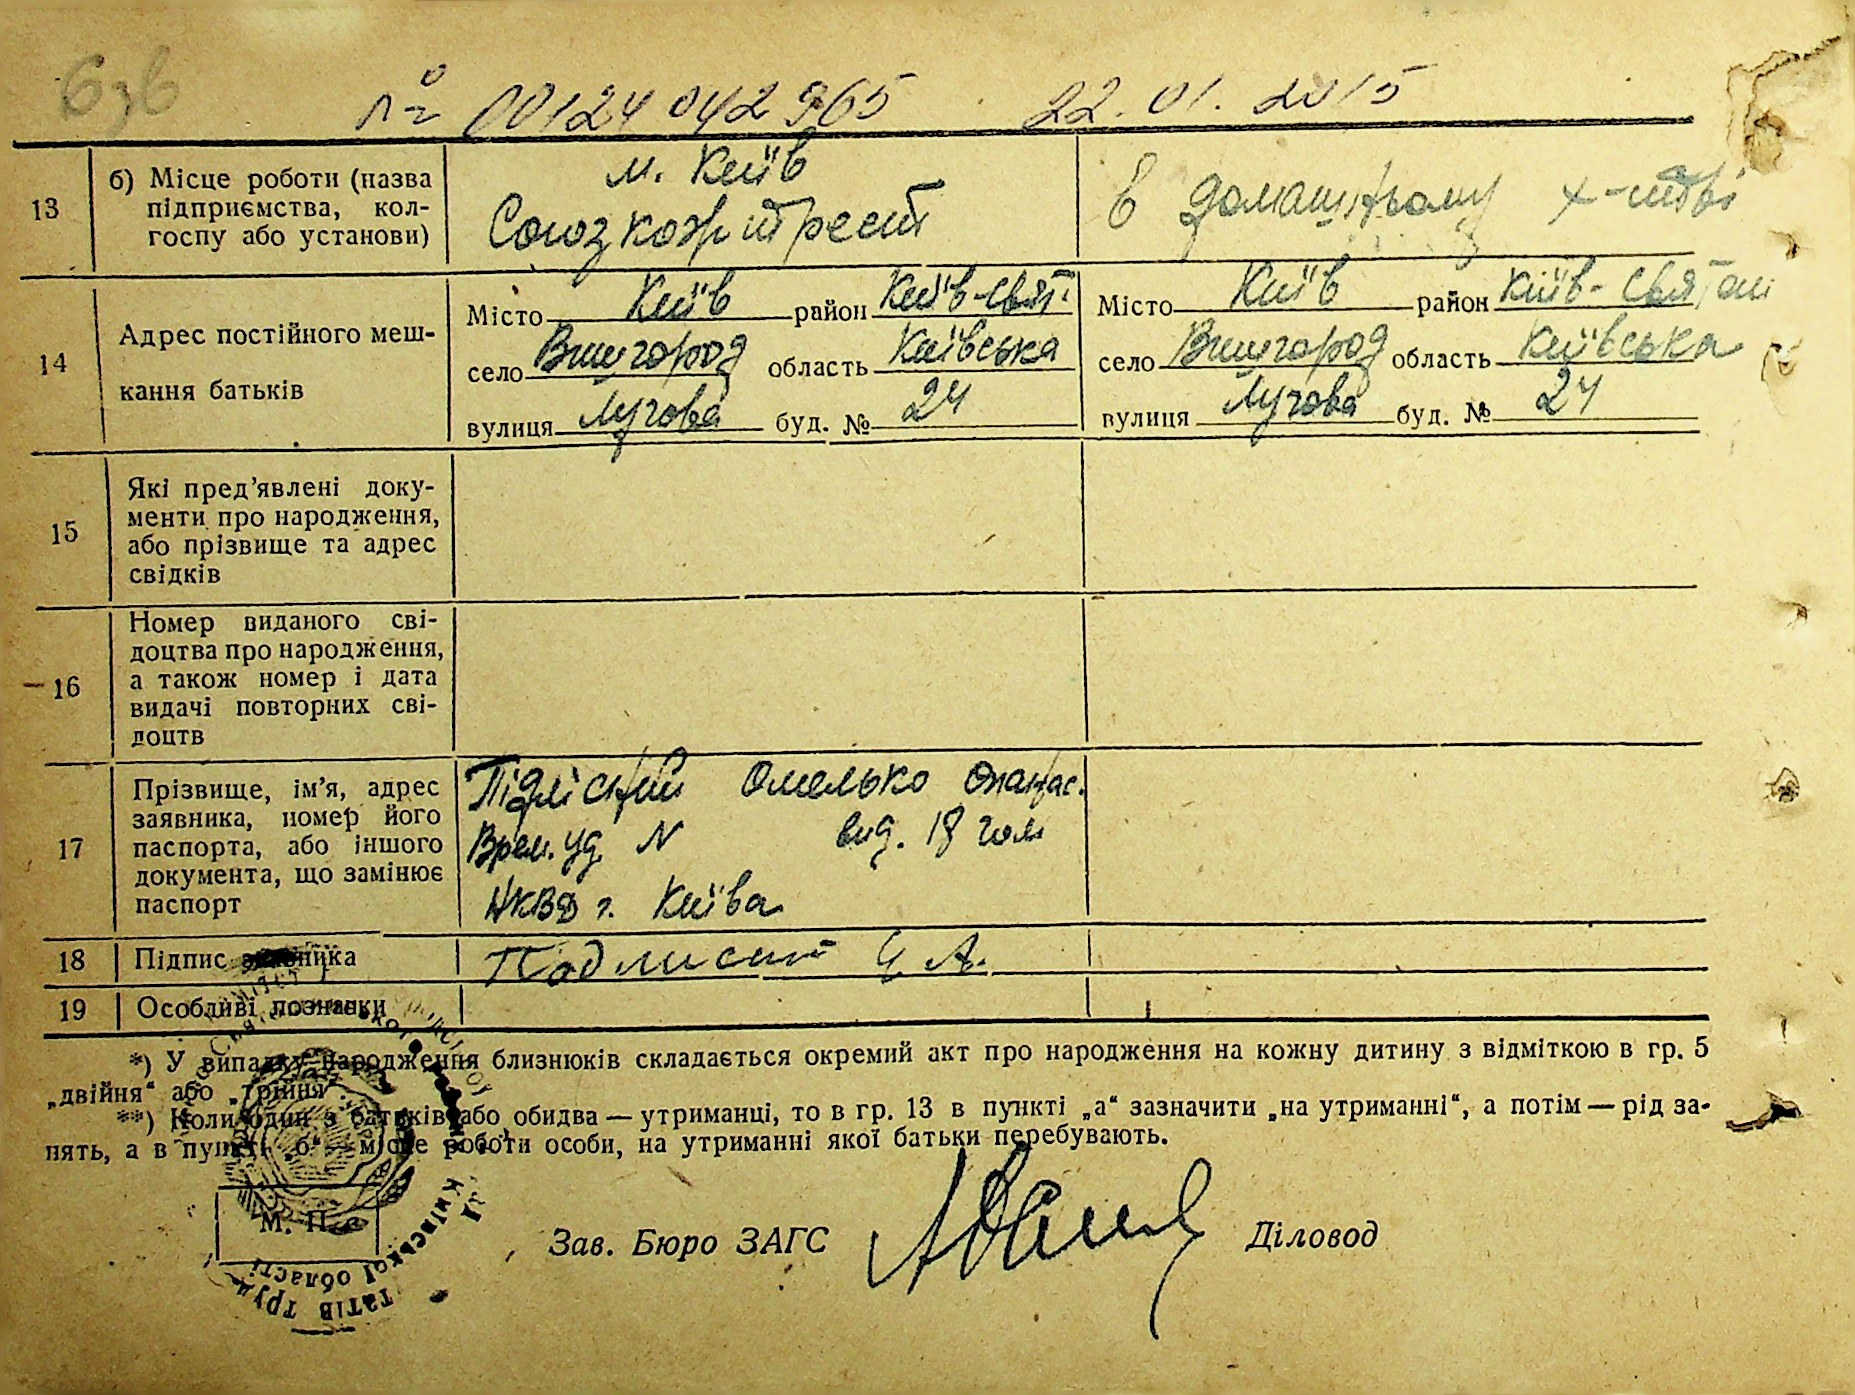 636
№ 00124042965 22.01.2015
13 б) Місце роботи (назва підприємства, кол-
госпу або установи)
м. Київ
Союзкожтрест
в домашньому х-стві
14 Адрес постійного меш-
кання батьків
Місто Київ район Київ-Свят. Місто Київ район Київ-Святош
село Вишгород область Київська село Вишгород область Київська
вулиця Лугова буд. № 24 вулиця Лугова буд. № 24
15 Які пред'явлені доку-
менти про народження,
або прізвище та адрес
свідків
16 Номер виданого сві-
доцтва про народження,
а також номер і дата
видачі повторних сві-
доцтв
17 Прізвище, ім'я, адрес
заявника, номер його
паспорта, або іншого
документа, що замінює
паспорт
Підлісний Омелько Опанас.
Врем. уд. N вид. 18 гом
НКВД г. Київа
18 Підпис заявника Подлисний Є. А.
19 Особливі познанки
*) У випадку народження близнюків складається окремий акт про народження на кожну дитину з відміткою в гр. 5
„двійня“ або „трійня“
**) Коли один з батьків або обидва — утриманці, то в гр. 13 в пункті „а“ зазначити „на утриманні“, а потім — рід за-
нять, а в пункті „б“ — місце роботи особи, на утриманні якої батьки перебувають.
М. П.
Київської області
Зав. Бюро ЗАГС Діловод